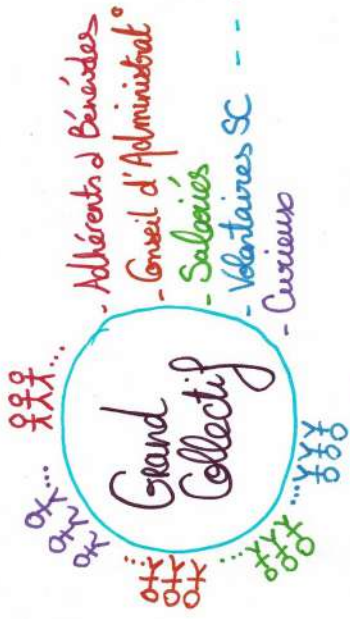 Grand
Collectif
- Adhérents & Bénévoles
- Conseil d'Administrat°
- Salariés
- Volontaires SC - -
- Curieux